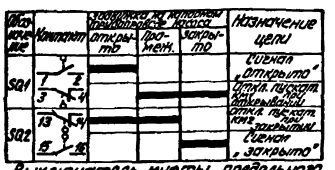 Обозначение
Контакт
Задвижка на напорном
трубопроводе насоса
Откры-
то
Про-
меж.
Закры-
то
Назначение
цепи
SQ1
1 2
Сигнал
„открыто“
3 4
Откл. пускат.
при
открывании
SQ2
13 14
Откл. пускат.
при
закрытии
15 16
Сигнал
„закрыто“
Выключатель муфты предельного